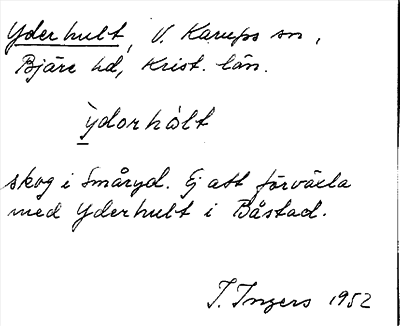 Yderhult, V. Karups sn,
Bjäre hd, Krist. län.
ỳdorhòlt
skog i Småryd. Ej att förväxla
med Yderhult i Båstad.
I. Ingers 1952